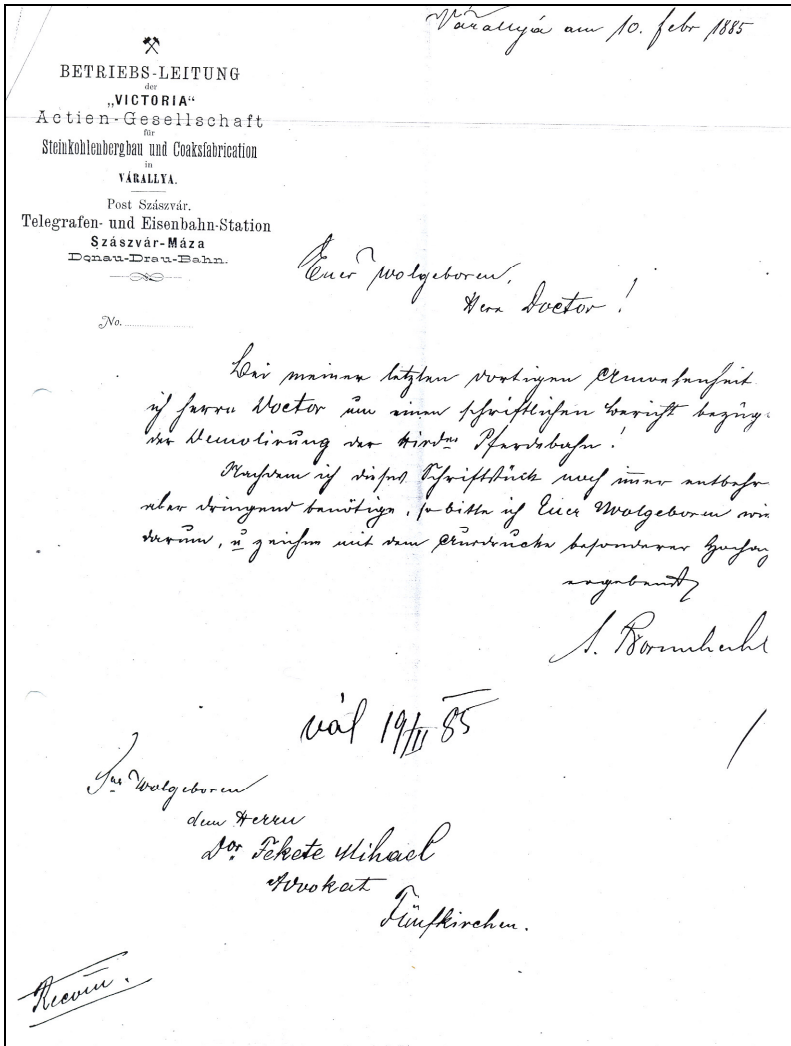 Várallya am 10. febr 1885
BETRIEBS-LEITUNG
der
„VICTORIA“
Actien-Gesellschaft
für
Steinkohlenbergbau und Coaksfabrication
in
VÁRALLYA.
Post Szászvár.
Telegrafen- und Eisenbahn-Station
Szászvár-Máza
Donau-Drau-Bahn.
No.
Euer Wolgeboren,
Herr Doctor!
Bei meiner letzten dortigen Anwesenheit
ich Herrn Doctor um einen schriftlichen Bericht bezüg
der Demolirung der Hirder Pferdebahn!
Nachdem ich dieses Schriftstück noch immer entbehr
aber dringend benötige, so bitte ich Euer Wolgeboren wie
darum, u zeichne mit dem Ausdrucke besonderer Hochac
ergebenst
vál 19/II 85
Sr Wolgeboren
dem Herrn
Dor. Fekete Mihael
Advokat
Fünfkirchen.
Recom.